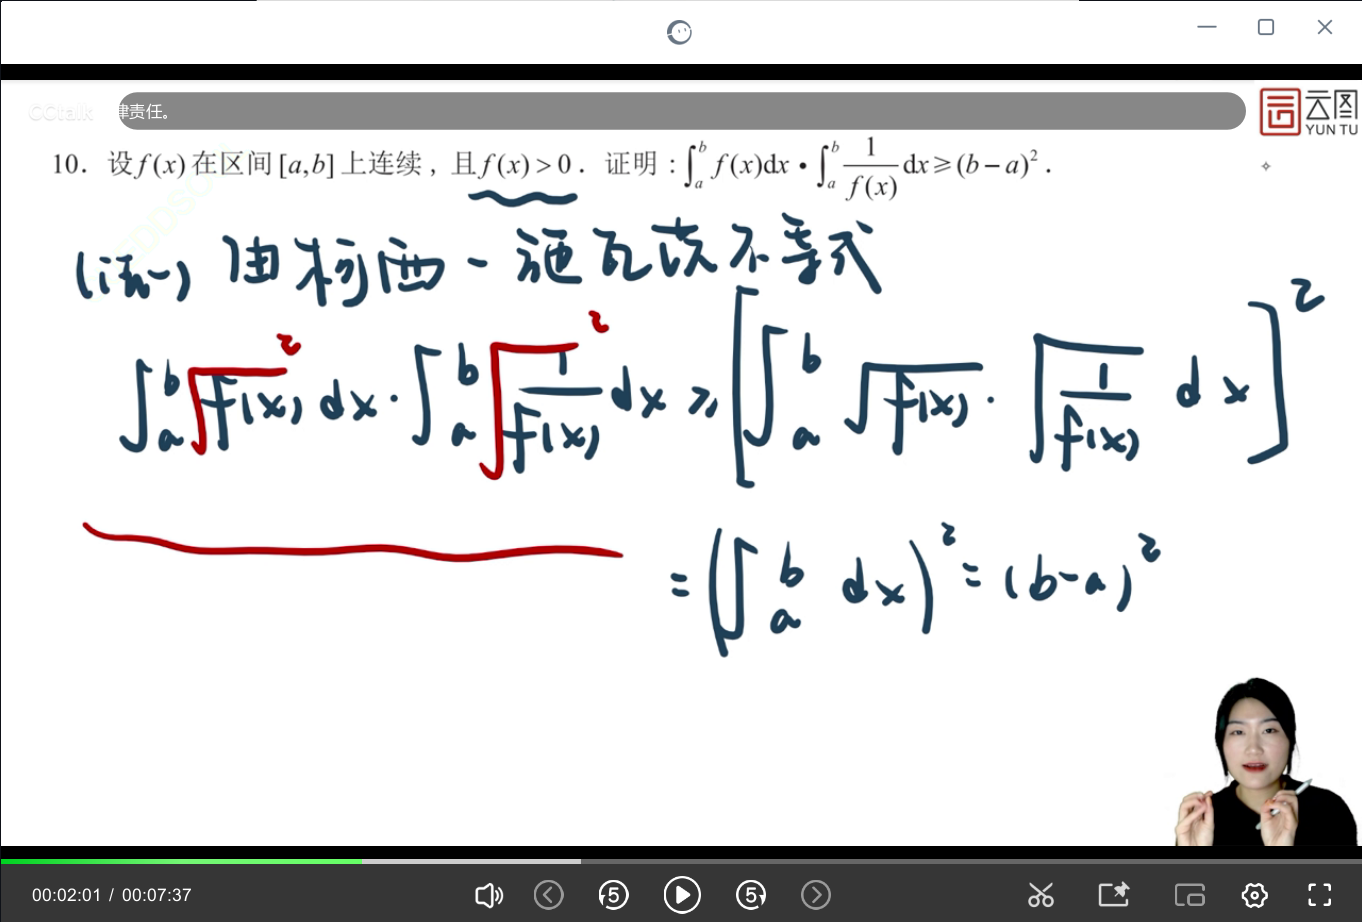 CCtalk
律责任。
云图
YUN TU
10. 设f(x)在区间[a,b]上连续，且f(x)>0. 证明:∫_a^b f(x)dx·∫_a^b 1/f(x) dx≥(b-a)².
(法一) 由柯西-施瓦茨不等式
∫_a^b √f(x)² dx·∫_a^b √(1/f(x))² dx ≥ [∫_a^b √f(x)·√(1/f(x)) dx]²
=(∫_a^b dx)²=(b-a)²
00:02:01 / 00:07:37
5
5